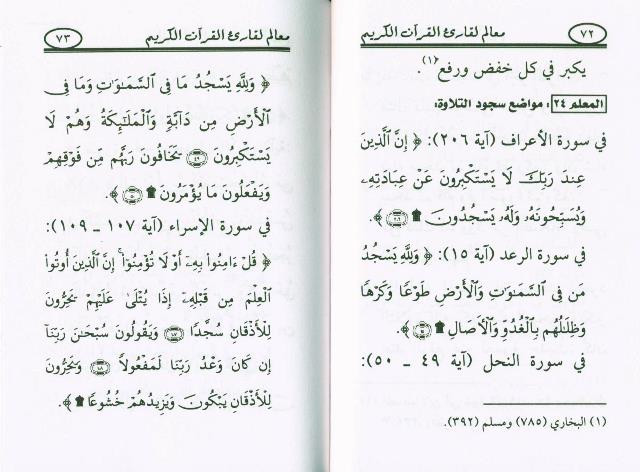 ٧٢ معالم لقارئ القرآن الكريم
يكبر في كل خفض ورفع(١).
المعلم ٢٤: مواضع سجود التلاوة:
في سورة الأعراف (آية ٢٠٦): ﴿ إِنَّ الَّذِينَ
عِندَ رَبِّكَ لَا يَسْتَكْبِرُونَ عَنْ عِبَادَتِهِۦ
وَيُسَبِّحُونَهُۥ وَلَهُۥ يَسْجُدُونَ ۩ ٢٠٦ ﴾.
في سورة الرعد (آية ١٥): ﴿ وَلِلَّهِ يَسْجُدُ
مَن فِى السَّمَٰوَٰتِ وَالْأَرْضِ طَوْعًا وَكَرْهًا
وَظِلَٰلُهُم بِالْغُدُوِّ وَالْأَصَالِ ۩ ١٥ ﴾.
في سورة النحل (آية ٤٩ ـ ٥٠):
(١) البخاري (٧٨٥) ومسلم (٣٩٢).
معالم لقارئ القرآن الكريم ٧٣
﴿ وَلِلَّهِ يَسْجُدُ مَا فِى السَّمَٰوَٰتِ وَمَا فِى
الْأَرْضِ مِن دَآبَّةٍ وَالْمَلَٰٓئِكَةُ وَهُمْ لَا
يَسْتَكْبِرُونَ ٤٩ يَخَافُونَ رَبَّهُم مِّن فَوْقِهِمْ
وَيَفْعَلُونَ مَا يُؤْمَرُونَ ۩ ٥٠ ﴾.
في سورة الإسراء (آية ١٠٧ ـ ١٠٩):
﴿ قُلْ ءَامِنُوا۟ بِهِۦٓ أَوْ لَا تُؤْمِنُوٓا۟ إِنَّ الَّذِينَ أُوتُوا۟
الْعِلْمَ مِن قَبْلِهِۦٓ إِذَا يُتْلَىٰ عَلَيْهِمْ يَخِرُّونَ
لِلْأَذْقَانِ سُجَّدًا ١٠٧ وَيَقُولُونَ سُبْحَٰنَ رَبِّنَآ
إِن كَانَ وَعْدُ رَبِّنَا لَمَفْعُولًا ١٠٨ وَيَخِرُّونَ
لِلْأَذْقَانِ يَبْكُونَ وَيَزِيدُهُمْ خُشُوعًا ۩ ﴾.